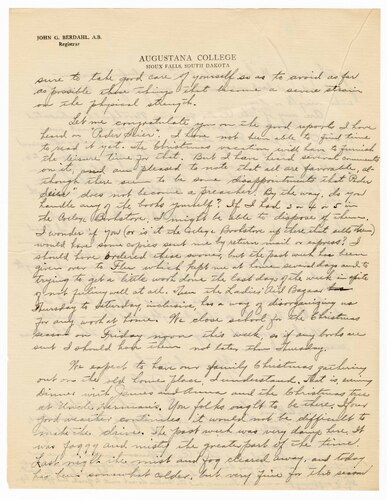 JOHN G. BERDAHL, A.B.
Registrar
AUGUSTANA COLLEGE
SIOUX FALLS, SOUTH DAKOTA
sure to take good care of yourself so as to avoid as far
as possible those things that become a severe strain
on the physical strength.
Let me congratulate you on the good reports I have
heard on "Peder Seier". I have not been able to find time
to read it yet. The Christmas vacation will have to furnish
the leisure time for that. But I have heard several comments
on it, and am pleased to note that all are favorable, al-
though there seems to be some disappointment that Peder
Seier" does not become a preacher. By the way, do you
handle any of the books yourself? If I had 3 or 4 or 5 in
the College Bookstore, I might be able to dispose of them.
I wonder if you (or is it the College Bookstore up there that sells them)
would have some copies sent me by return mail or express? I
should have ordered these sooner, but the past week has been
given over to Flu which kept me at home several days and to
trying to get a little work done the last days of the week in spite
of not feeling well at all. Then the Ladies' Aid Bazaar
Thursday to Saturday, inclusive, has a way of disorganizing us
for any work at home. We close school for the Christmas
season on Friday noon this week, so if any books are
sent I should have them not later than Thursday.
We expect to have our family Christmas gathering
out on the old home place, I understand. That is, evening
dinner with James and Emma and the Christmas tree
at Uncle Herman's. You folks ought to be there. If our
good weather continues, it would not be difficult to
make the drive. The past week was very damp here. It
was foggy and misty the greater part of the time.
Last night the mist and fog cleared away, and today
has been somewhat colder, but very fine for this season